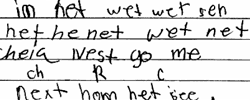 im het wet wet seh
het he net wet net
cheia Nest go me
ch R c
next hom het see.